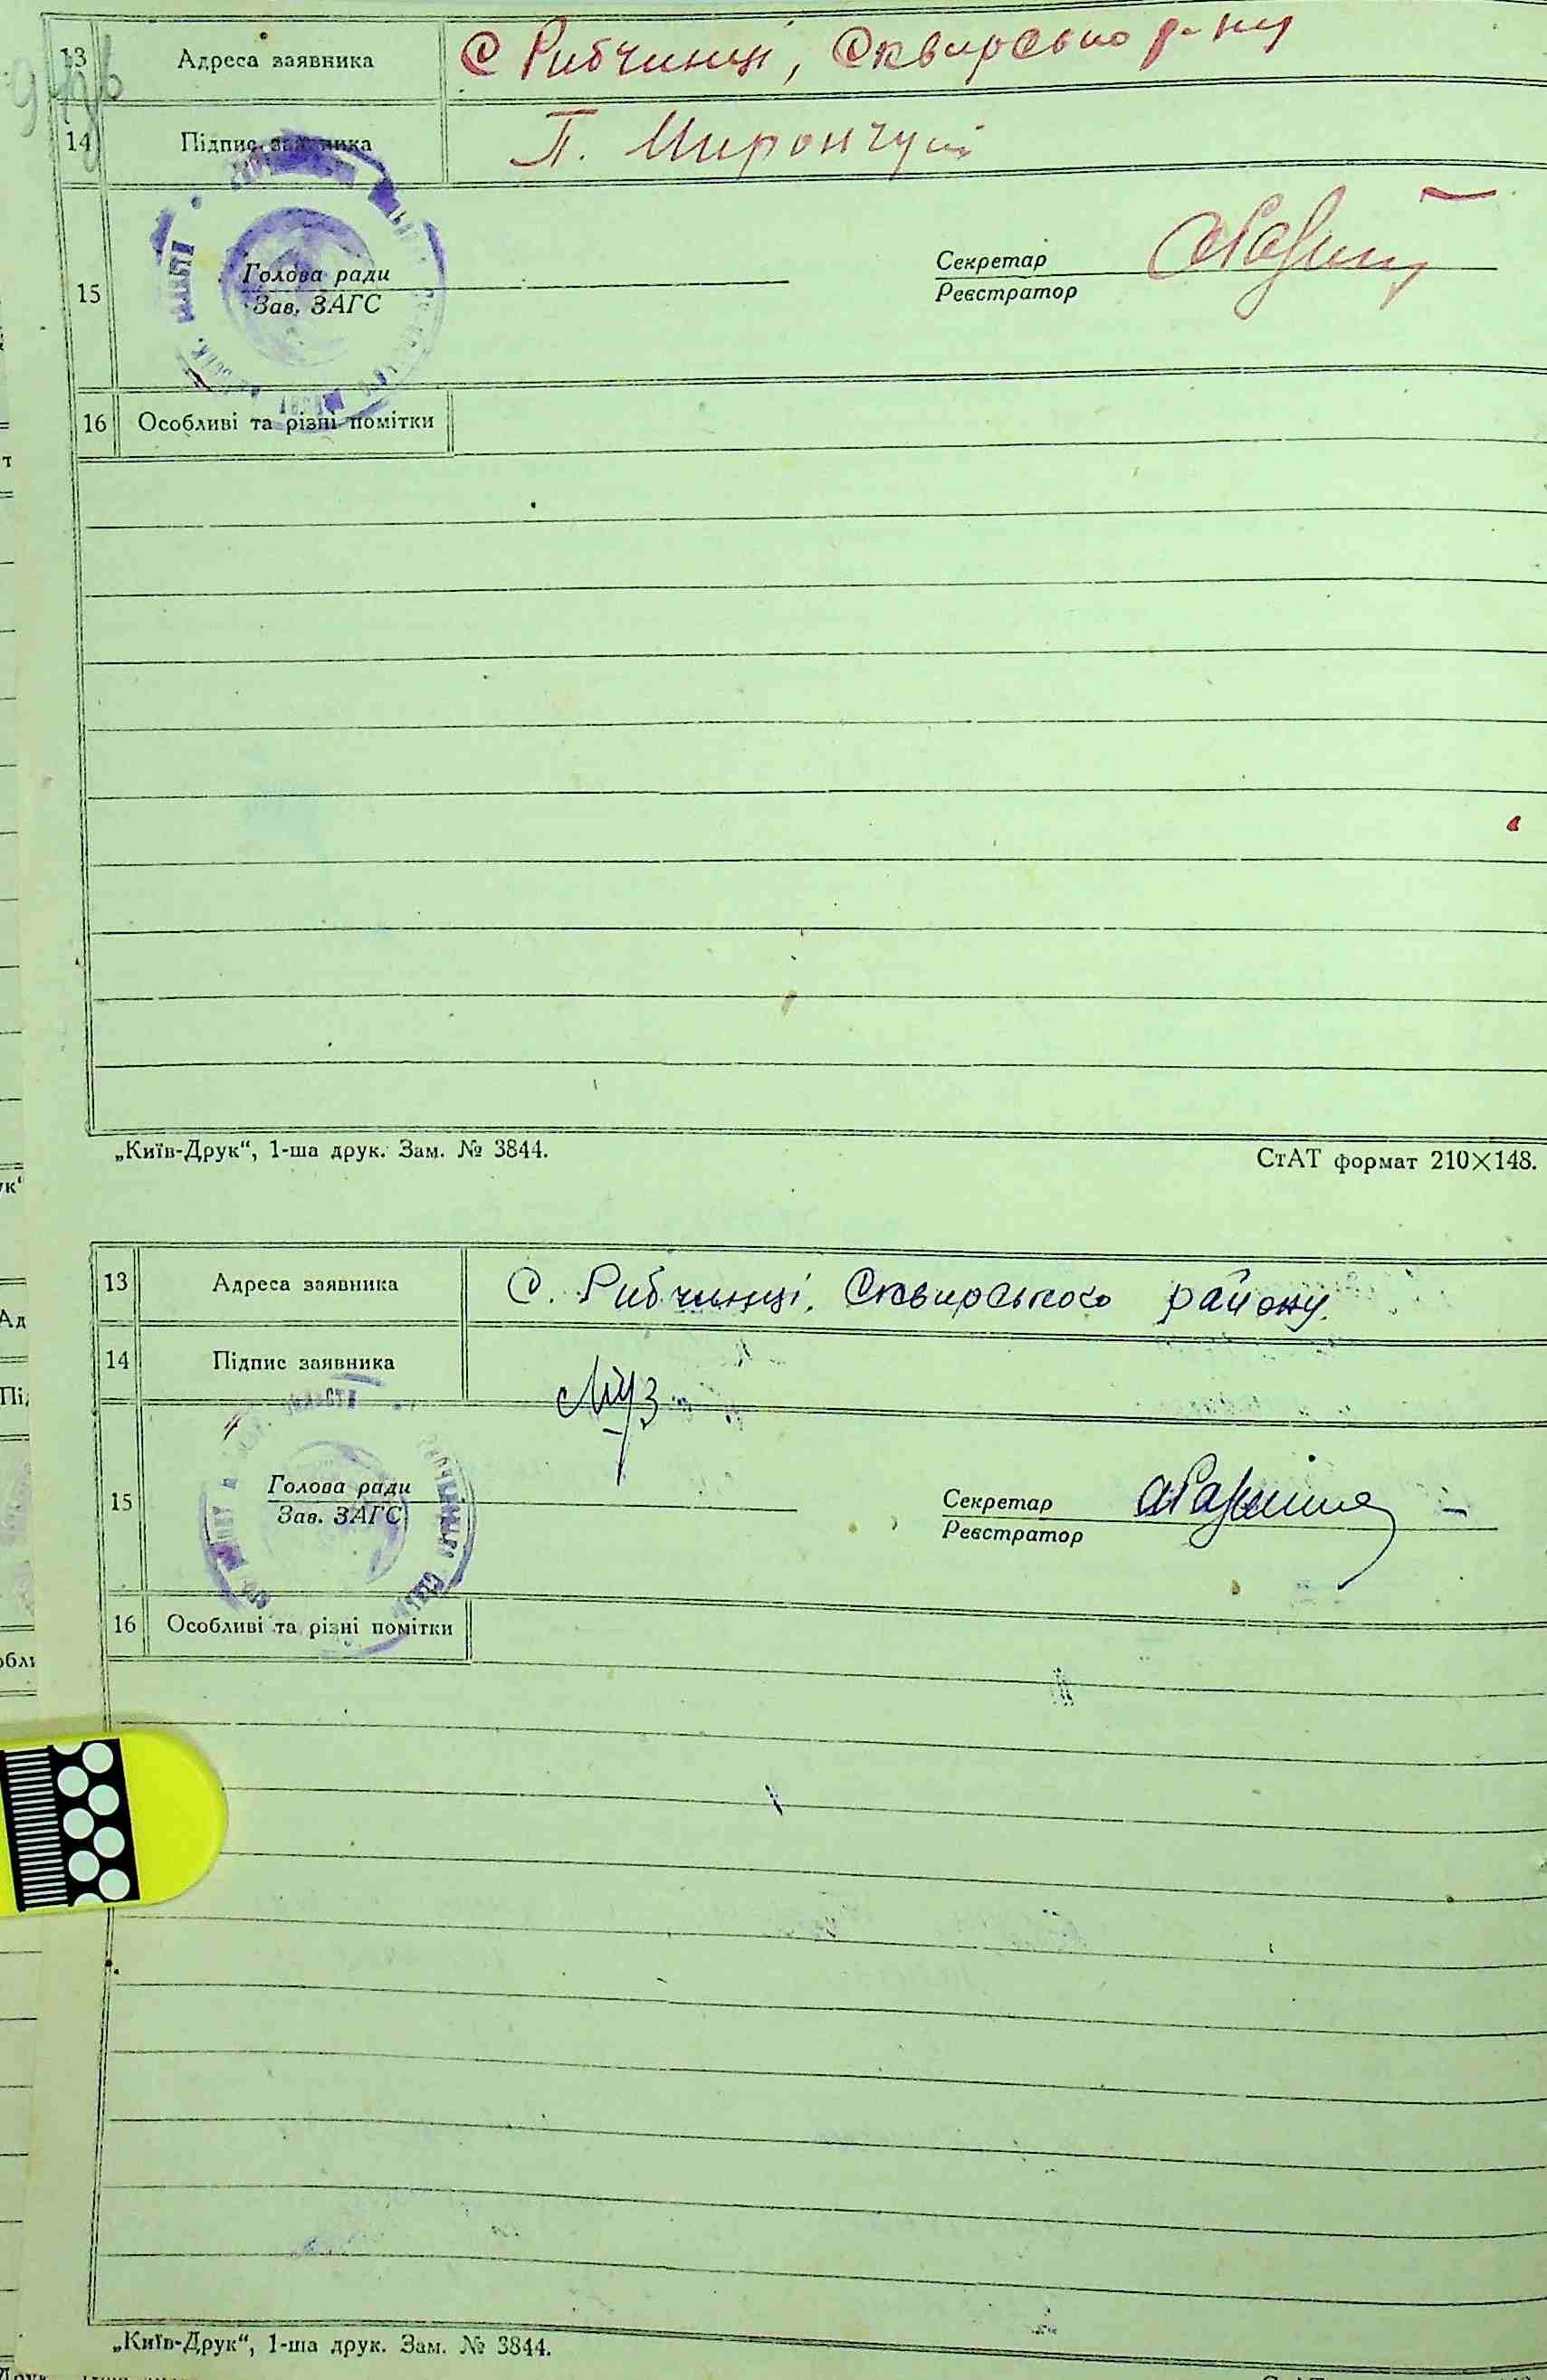 13 Адреса заявника С Рибчинці, Сквирсько р-ну
14 Підпис заявника П. Мирончук
15 Голова ради Секретар
Зав. ЗАГС Реєстратор
16 Особливі та різні помітки
„Київ-Друк“, 1-ша друк. Зам. № 3844. СтАТ формат 210×148.
13 Адреса заявника С. Рибчинці. Сквирського району.
14 Підпис заявника
15 Голова ради Секретар
Зав. ЗАГС Реєстратор
16 Особливі та різні помітки
„Київ-Друк“, 1-ша друк. Зам. № 3844.